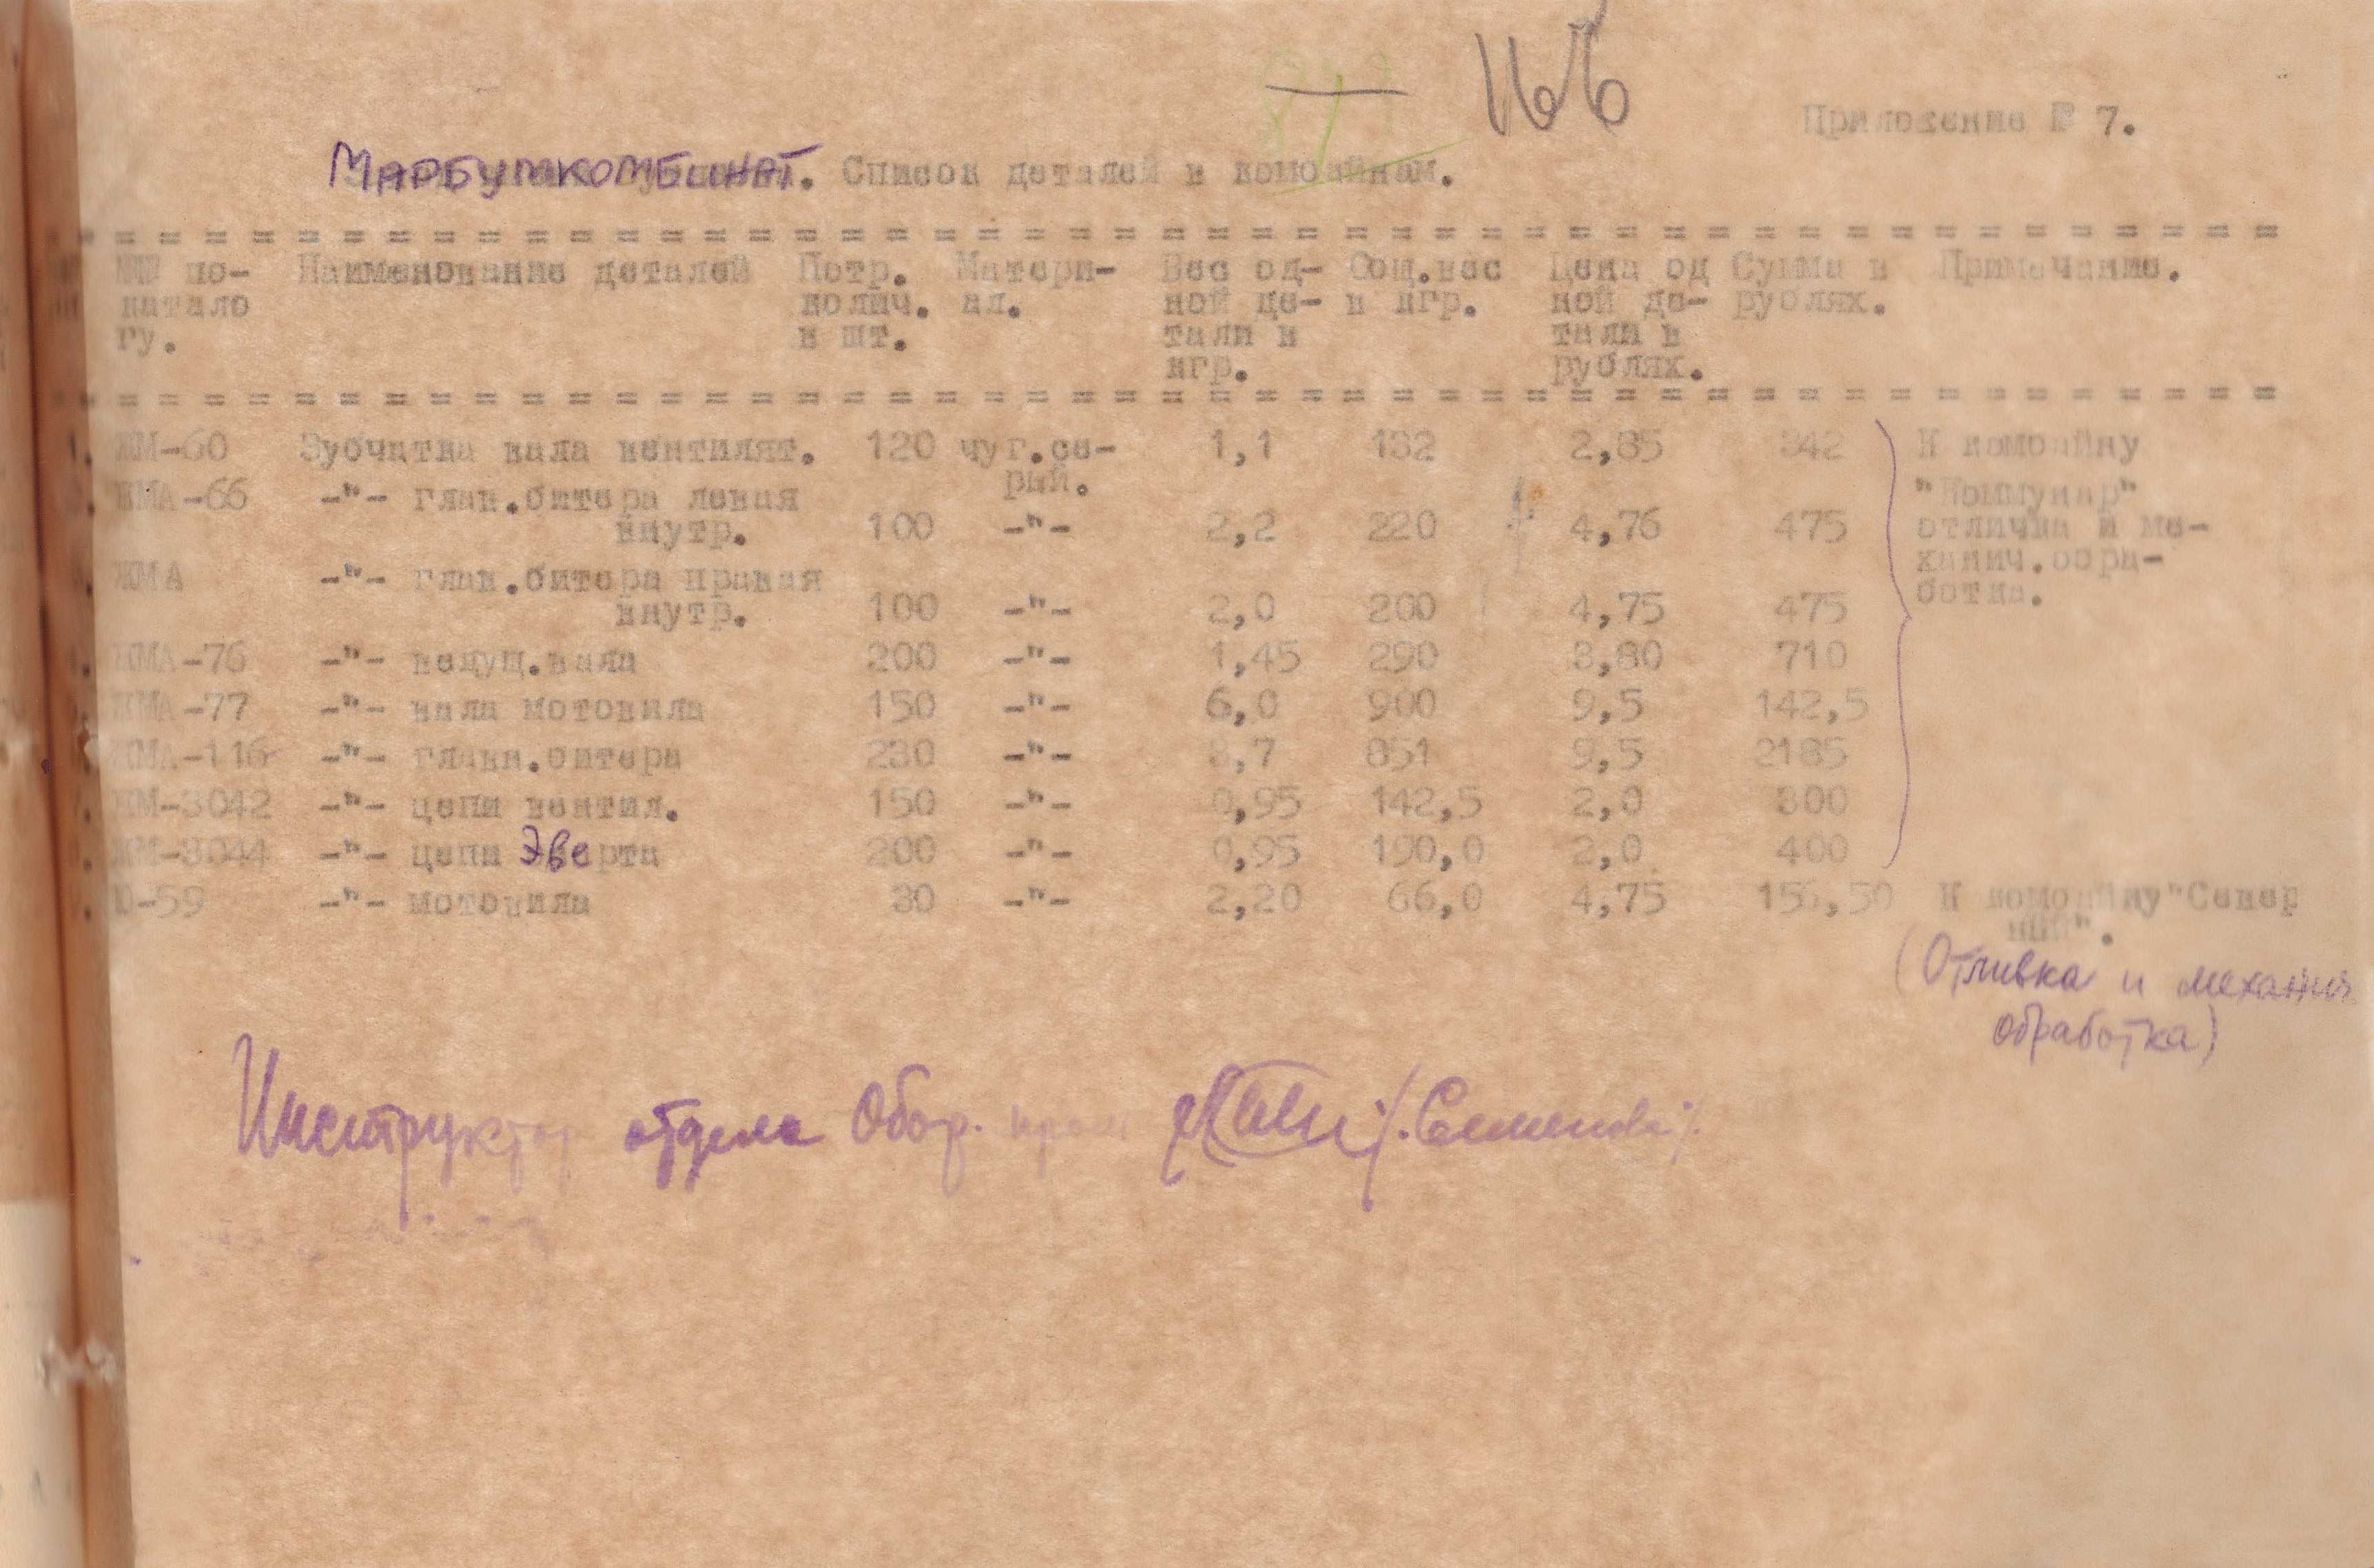 166
Приложение № 7.
МАРБУМКОМБИНАТ. Список деталей к комбайнам.
№№ по- Наименование деталей Потр. Матери- Вес од- Общ.вес Цена од Сумма в Примечание.
катало колич. ал. ной де- в кгр. ной де- рублях.
гу. в шт. тали в тали в
кгр. рублях.
ЖМ-60 Зубчатка вала вентилят. 120 чуг.се- 1,1 132 2,85 342 К комбайну
рый.
ЖМА-66 -"- глав.битера левая "Коммунар"
внутр. 100 -"- 2,2 220 4,76 475 отливка и ме-
ханич.обра-
ЖМА -"- глав.битера правая ботка.
внутр. 100 -"- 2,0 200 4,75 475
ЖМА-76 -"- ведущ.вала 200 -"- 1,45 290 3,80 710
ЖМА-77 -"- вала мотовила 150 -"- 6,0 900 9,5 142,5
ЖМА-116 -"- главн.битера 230 -"- 3,7 851 9,5 2185
ЖМ-3042 -"- цепи вентил. 150 -"- 0,95 142,5 2,0 300
ЖМ-3044 -"- цепи Эверта 200 -"- 0,95 190,0 2,0 400
Ю-59 -"- мотовила 30 -"- 2,20 66,0 4,75 156,50 К комбайну"Север
ный".
(Отливка и механич
обработка)
Инструктор отдела Обор. пром /.Семенова/.